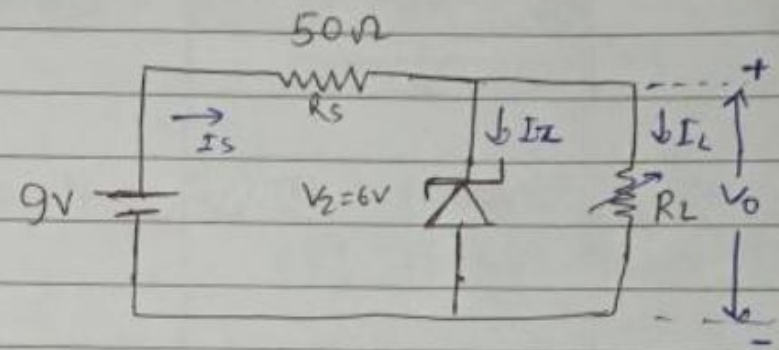 50Ω
Rs
Is
Iz
IL
+
9V
Vz=6V
RL
Vo
-